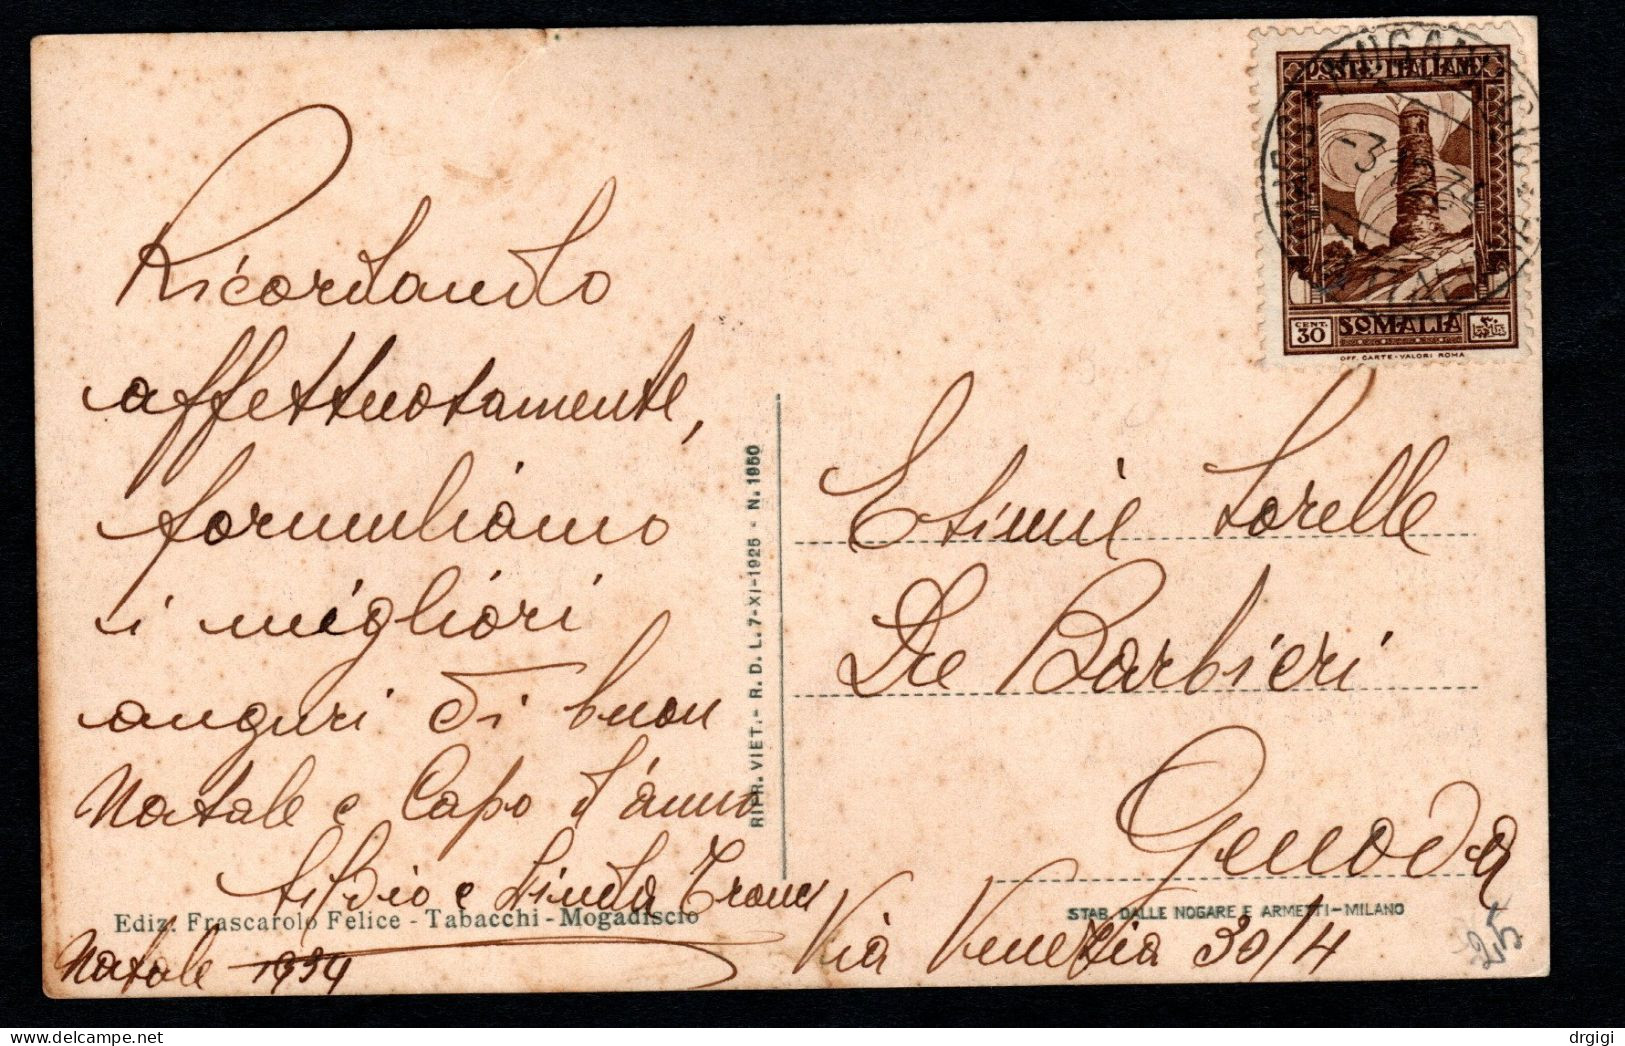 Ricordando
affettuosamente,
formuliamo
i migliori
auguri di buon
Natale e Capo d'anno
Silvio e Linda
Natale 1934
Ediz. Frascarolo Felice - Tabacchi - Mogadiscio
RIPR. VIET. - R. D. L. 7-XI-1925 - N. 1950
POSTE ITALIANE
CENT. 30 SOMALIA
OFF. CARTE-VALORI ROMA
-3.12.34
Esimie Sorelle
De Barbieri
Genova
Via Venezia 30/4
STAB. DALLE NOGARE E ARMETTI-MILANO
25
drgigi
delcampe.net